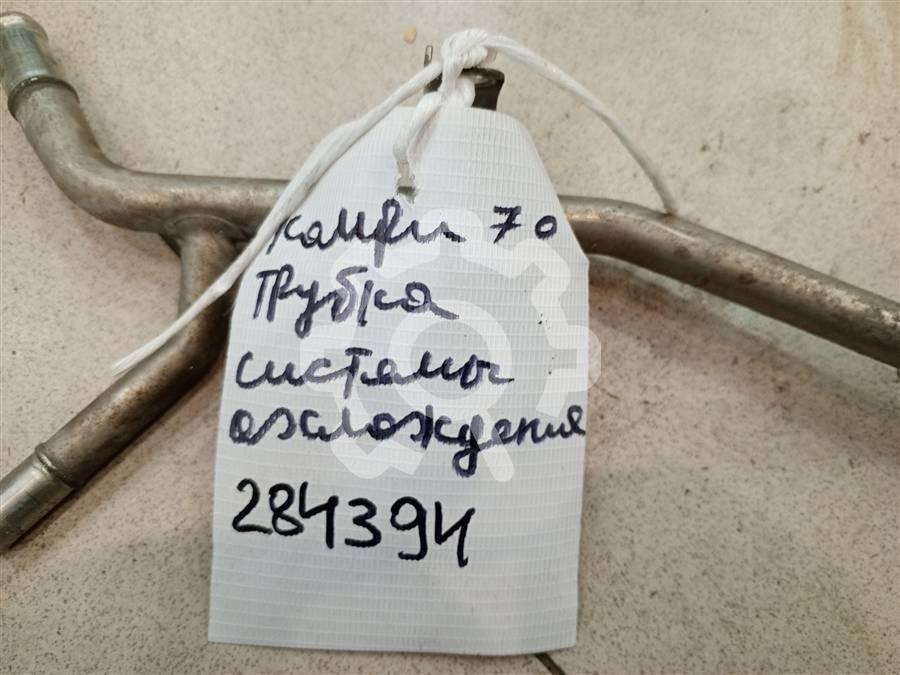 камри 70
Трубка
системы
охлождения
284394